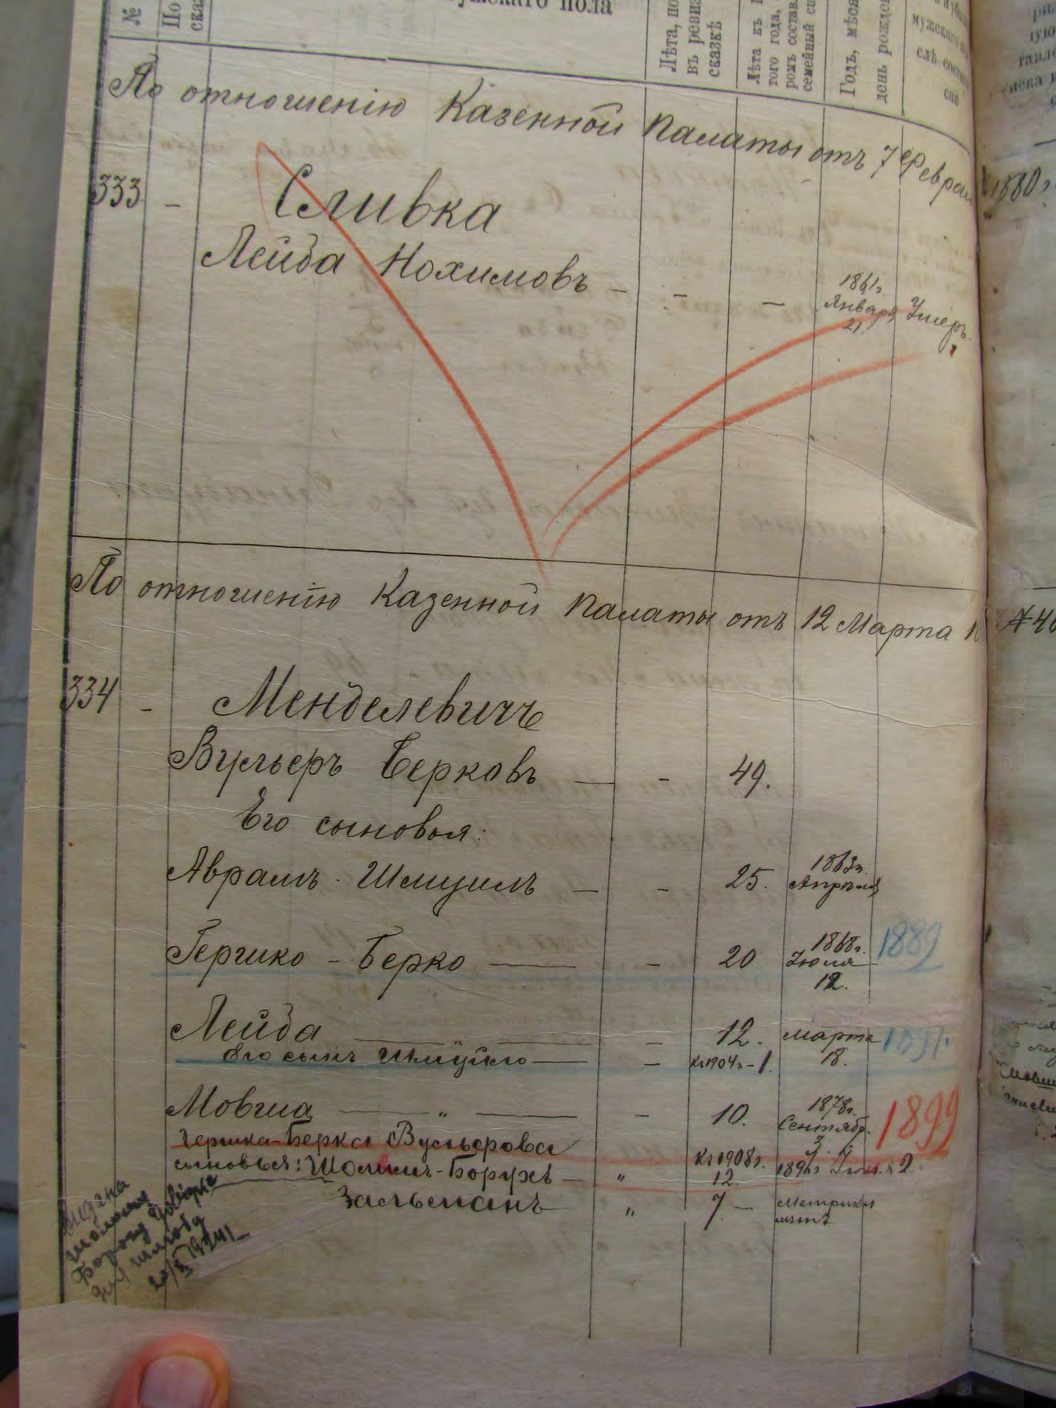 №
По
ска
ужскаго пола
Лѣта, по
въ ревиз
сказкѣ
Лѣта къ 1
того года,
ромъ состав.
семейный сп
Годъ, мѣся
день рожде
мужского
слѣ соста
сан
По отношенію Казенной Палаты отъ 7 Феврал 1880 г
333 –
Сливка
Лейба Нохимовъ – – –
1861 г.
Января
21.
Умеръ.
По отношенію Казенной Палаты отъ 12 Марта 1 № 40
334 –
Менделевичъ
Вульферъ Берковъ — – 49.
Его сыновья:
Аврамъ - Шмуилъ — – 25. 1863 г. Апрѣля
Гершко – Берко — – 20 1868 г. Іюля 12. 1889
Лейба — 12. Марта 18. 1891.
Его сынъ Шмуйло — – къ 1904 г. – 1.
Мовша — „ — – 10. 1878 г. Сентябр. 1899
Гершка-Берка Вульфрова
сыновья: Шоломъ-Борухъ — „ къ 1908 г. 12.
Залманъ — „ 7 — Метрики нѣтъ